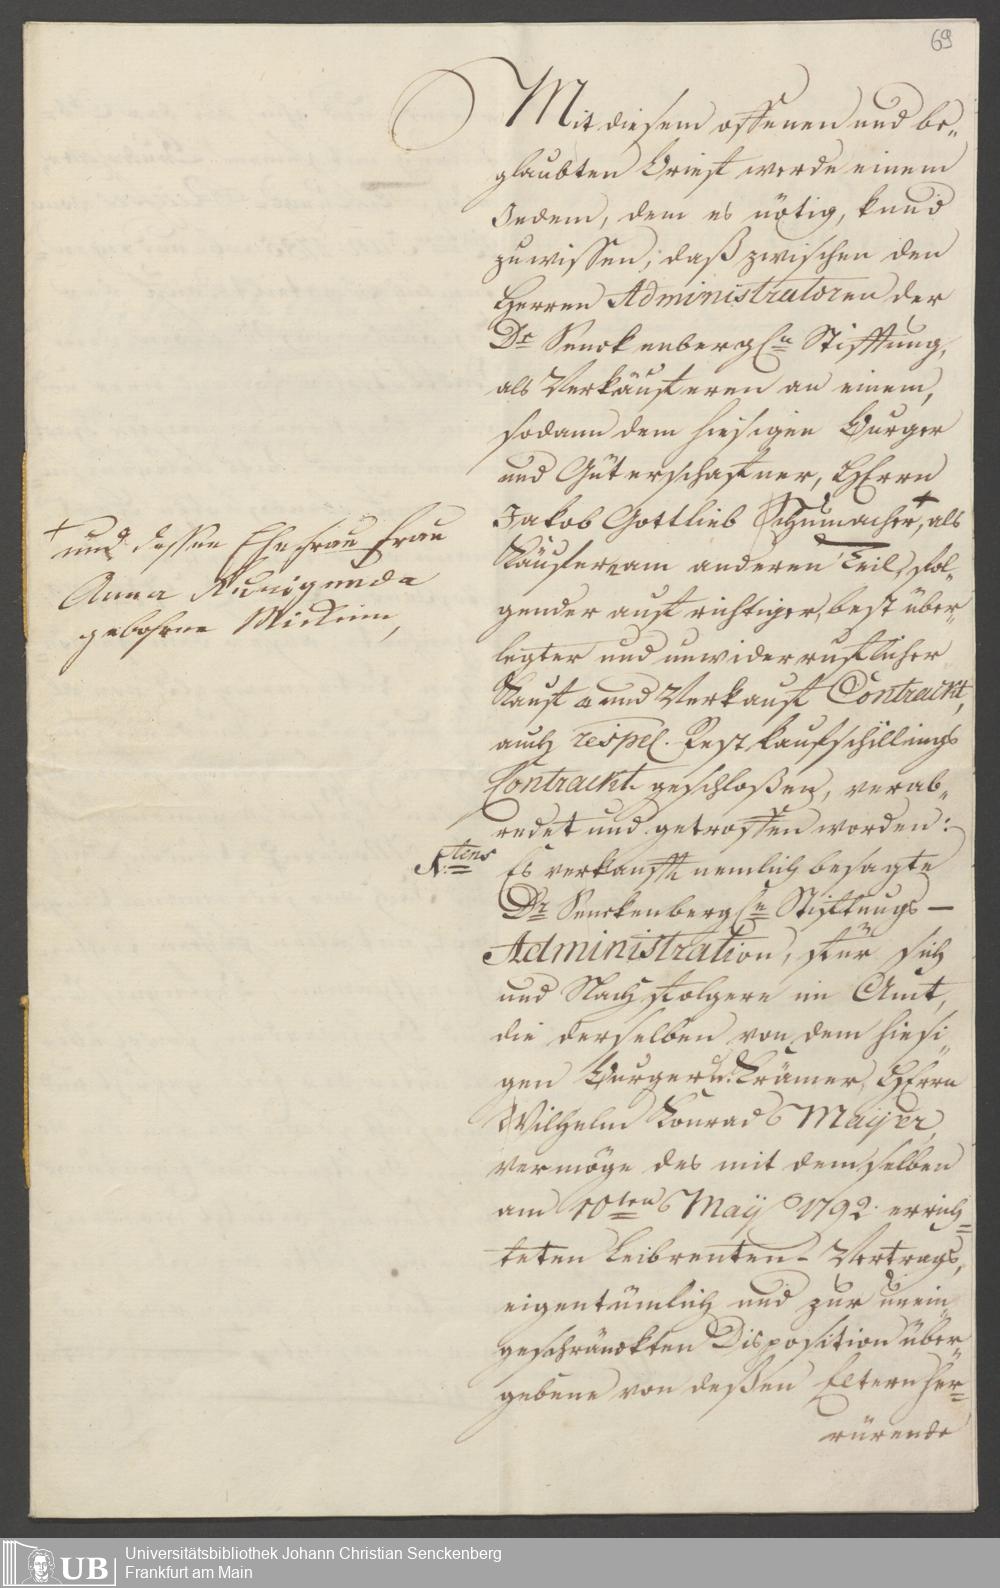 69
Mit diesem offenen und be„
glaubten Brief werde einem
Jedem, dem es nötig, kund
zu wissen, daß zwischen den
Herren Administratoren der
Dr Senckenbergsn Stifftung,
als Verkäuferen an einem,
sodann dem hiesigen Burger
und Güterschaffner, HErrn
Jakob Gottlieb Schumacher +, als
Käuferen am anderen Teil, fol„
gender aufrichtiger, best über„
legter und unwiderruflicher
Kauf u und Verkauf Contrackt,
auch respec. Restkaufschillings
Contrackt geschloßen, verab„
redet und getroffen worden:
+ und dessen Ehefrau Frau
Anna Kunigunda
gebohrne
1.tens Es verkaufft nemlich besagte
Dr Senckenbergsn Stiftungs –
Administration, für sich
und Nachfolgere im Amt,
die derselben von dem hiesi„
gen Burger u. Krämer, HErrn
Wilhelm Konrad Mayer,
vermöge des mit demselben
am 10ten Maÿ 1792. errich„
teten Leibrenten-Vertrags,
eigentümlich und zur unein„
geschränckten Disposition über„
gebene von deßen Eltern her„
rürende
UB
Universitätsbibliothek Johann Christian Senckenberg
Frankfurt am Main